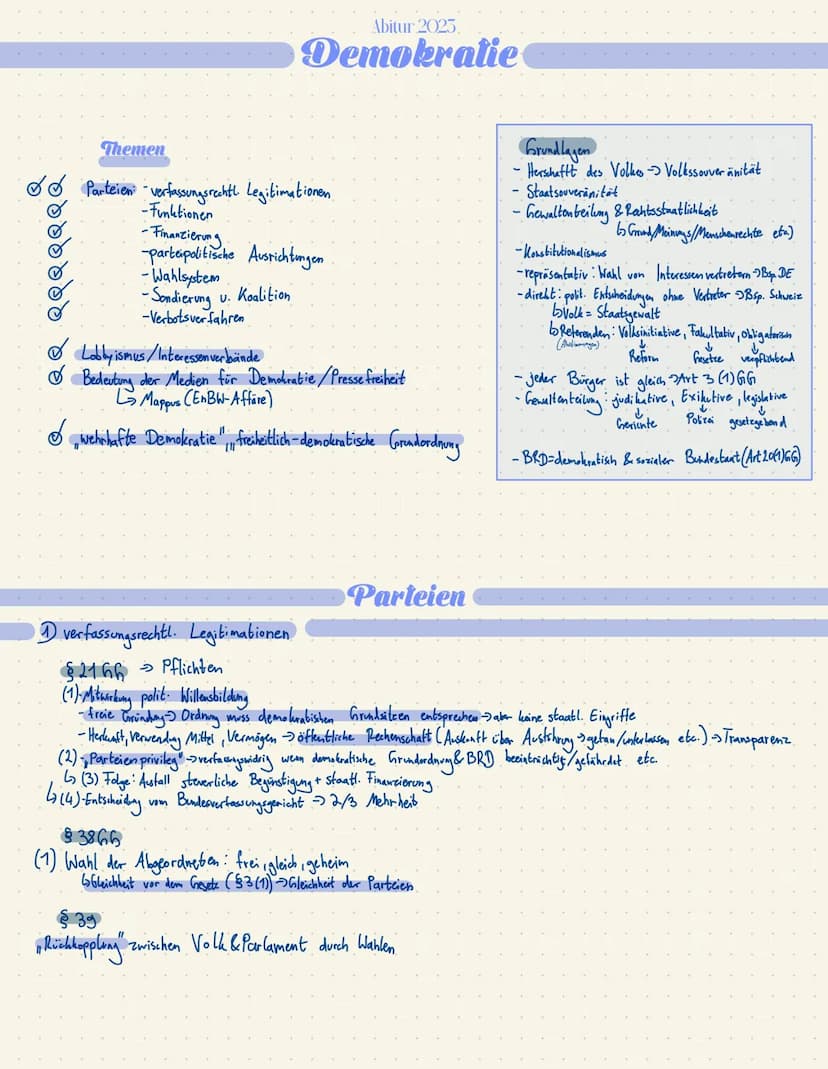 Abitur 2023
Demokratie
Themen
Parteien: - verfassungsrechtl. Legitimationen
- Funktionen
- Finanzierung
- parteipolitische Ausrichtungen
- Wahlsystem
- Sondierung u. Koalition
- Verbotsverfahren
Lobbyismus/Interessenverbände
Bedeutung der Medien für Demokratie/Pressefreiheit
↳ Mappus (EnBW-Affäre)
„wehrhafte Demokratie", „freiheitlich-demokratische Grundordnung
Grundlagen
- Herschafft des Volkes → Volkssouveränität
- Staatsouveränität
- Gewaltenteilung & Rechtsstaatlichkeit
↳ Grund/Meinungs/Menschenrechte etc)
- Konstitutionalismus
- repräsentativ: Wahl von Interessenvertretern → Bsp. DE
- direkt: polit. Entscheidungen ohne Vertreter → Bsp. Schweiz
↳ Volk = Staatsgewalt
↳ Referenden: Volksinitiative, Fakultativ, obligatorisch
(Abstimmungen) ↓ ↓ ↓
Reform Gesetze verpflichtend
- jeder Bürger ist gleich → Art 3 (1) GG
- Gewaltenteilung: judikative, Exikutive, legislative
↓ ↓ ↓
Gerichte Polizei gesetzgebend
- BRD = demokratisch & sozialer Bundestaat (Art 20(1) GG)
Parteien
① verfassungsrechtl. Legitimationen
§ 21 GG → Pflichten
(1) - Mitwirkung polit. Willensbildung
- freie Gründung → Ordnung muss demokratischen Grundsätzen entsprechen → aber keine staatl. Eingriffe
- Herkunft, Verwendung Mittel, Vermögen → öffentliche Rechenschaft (Auskunft über Ausführung → getan/unterlassen etc.) → Transparenz
(2) - „Parteienprivileg" → verfassungswidrig wenn demokratische Grundordnung & BRD beeinträchtigt/gefährdet etc.
↳ (3) Folge: Ausfall steuerliche Begünstigung + staatl. Finanzierung
↳ (4) - Entscheidung vom Bundesverfassungsgericht → 2/3 Mehrheit
§ 38 GG
(1) Wahl der Abgeordneten: frei, gleich, geheim
↳ Gleichheit vor dem Gesetz (§ 3 (1)) → Gleichheit der Parteien
§ 39
„Rückkopplung" zwischen Volk & Parlament durch Wahlen